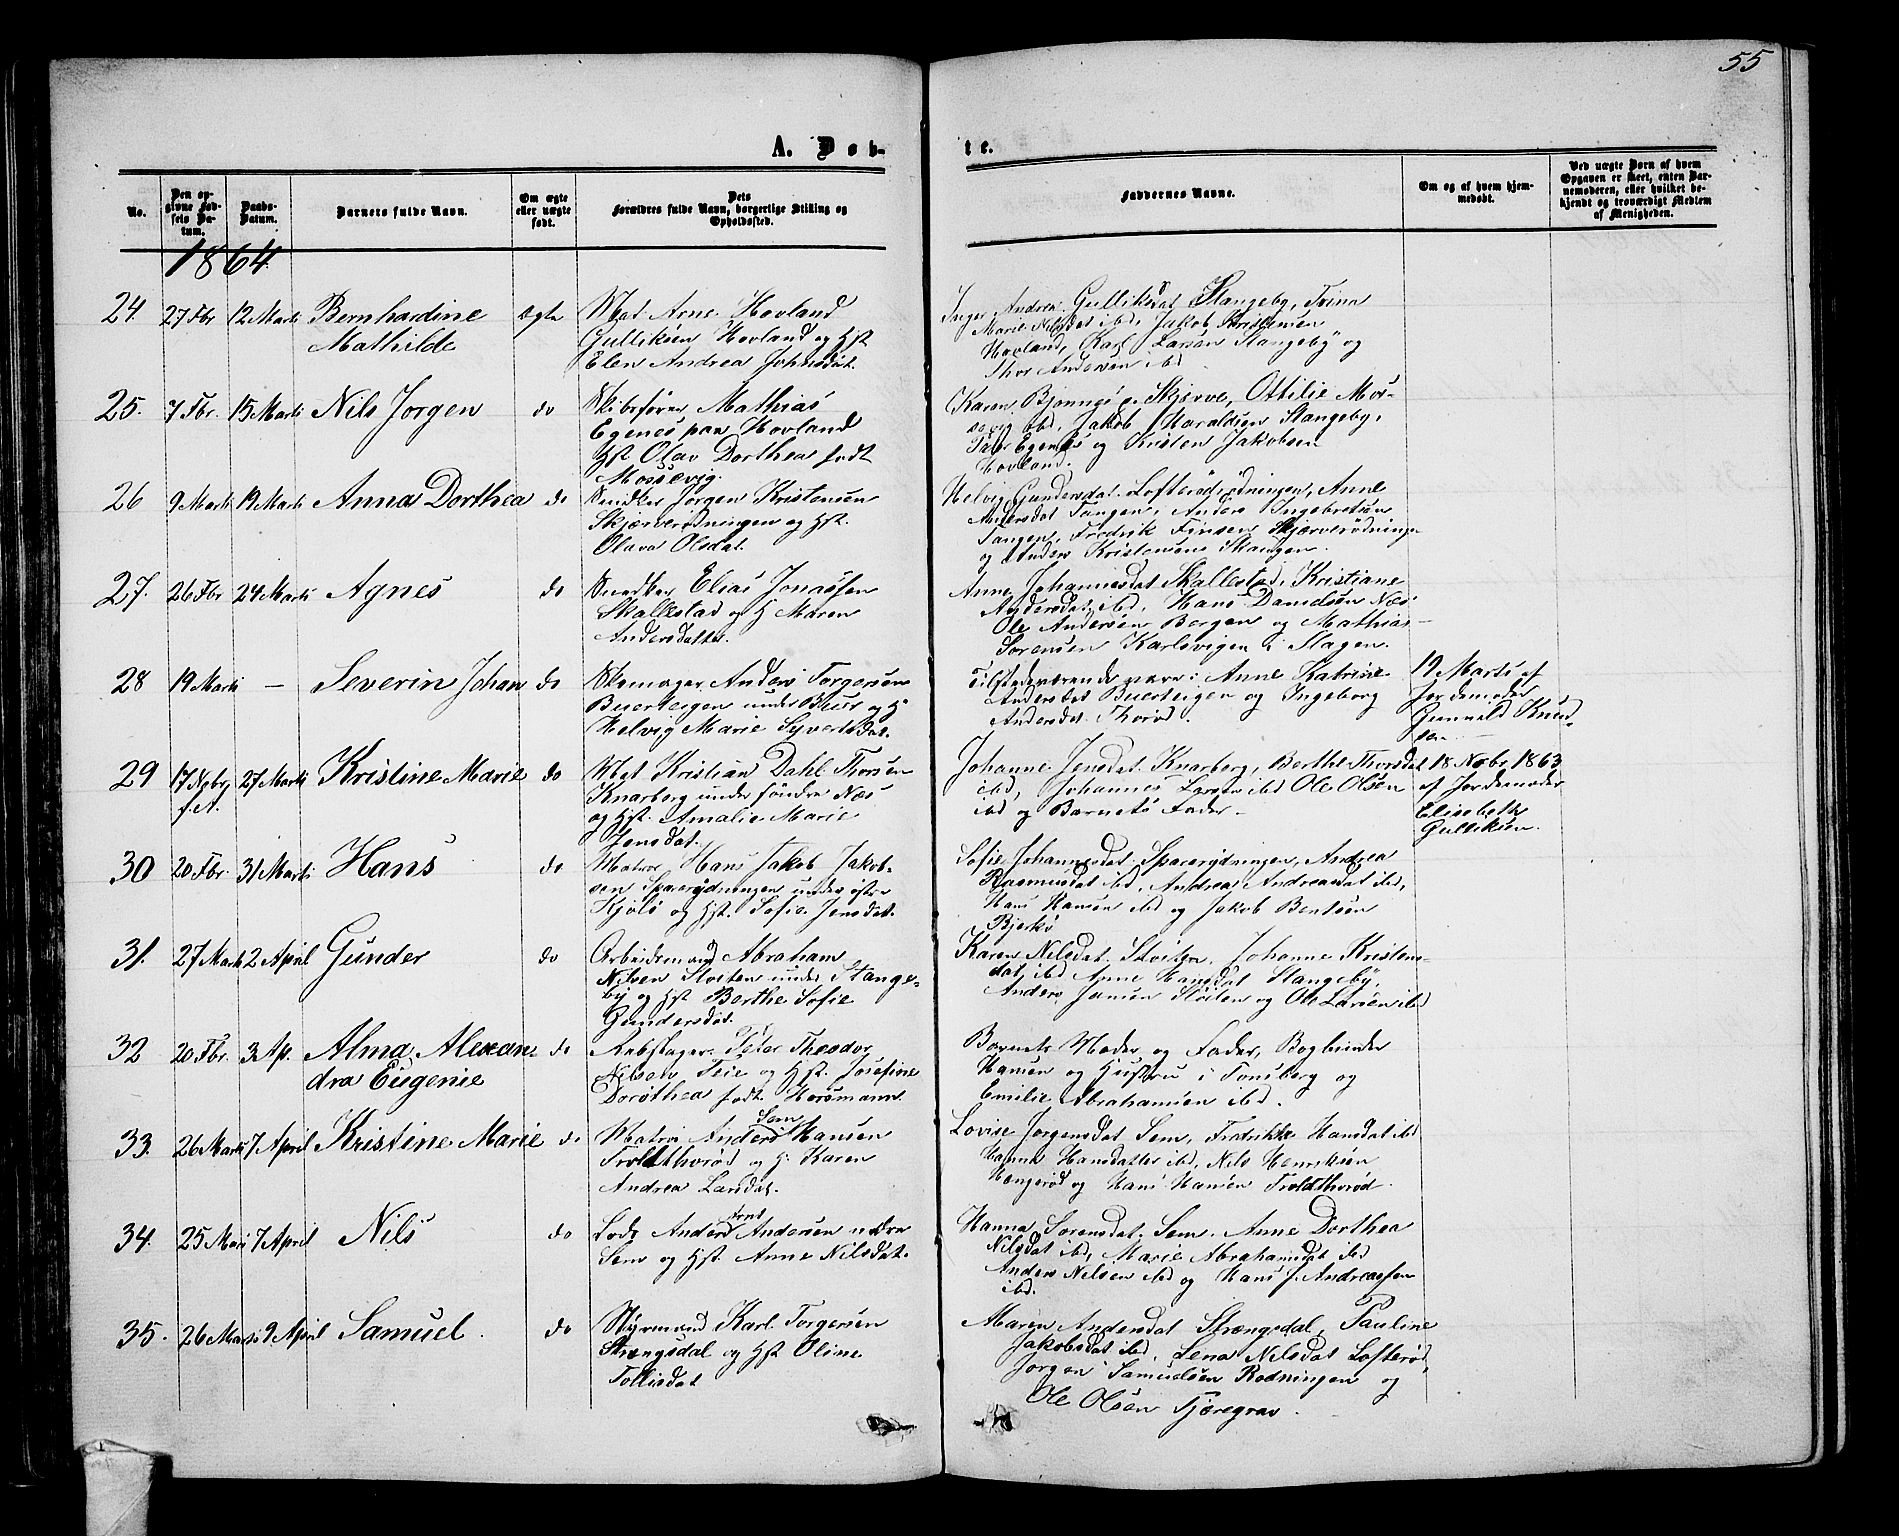 55
A. Døb-
te.
No.
Den opgivne Fødsels Datum.
Daabs-Datum.
Barnets fulde Navn.
Om ægte eller uægte født.
Dets Forældres fulde Navn, borgerlige Stilling og Opholdssted.
Faddernes Navne.
Om og af hvem hjemmedøbt.
Ved uægte Børn af hvem Opgaven er skeet, enten Barnemoderen, eller hvilket bekjendt og troværdigt Medlem af Menigheden.
1864
24. 27 Fbr 12 Marts Bernhardine ægte Mat Arne Hovland
Mathilde Gulliksen Hovland og Hst
Elen Andrea Johnsdat.
Inger Andrea Gulliksdat Stangeby, Trina
Marie Nilsdat ibd, Jakob Kristensen
Hovland, Karl Larsen Stangeby og
Thor Andersen ibd
25. 7 Fbr. 15 Marts Nils Jørgen do Skibsfører Mathias
Egenes paa Hovland
Hst Olav Dorthea født
Mossevig.
Karen Bjønnes Skjerve, Ottilie Mos-
sevig ibd, Jakob Haraldsen Stangeby,
Egenes og Kristen Jakobsen
Hovland.
26 9 Marts 19 Marts Anna Dorthea do Snedker Jørgen Kristensen
Skjærverødningen og Hst.
Olava Olsdat.
Helvig Gundersdat Lofterødrødningen, Anne
Andersdat Tangen, Anders Ingebretsen
Tangen, Fredrik Finsen Skjærverødningen
og Anders Kristensen
27. 26 Fbr 24 Marts Agnes do Snedker Elias Jonassen
Skallestad og H Maren
Andersdatter.
Anne Johannesdat Skallestad, Kristiane
Andersdat ibd, Hans Danielsen Næs
Ole Andersen Bergen og Mathias
Sørensen Karlsvigen i Slagen.
28 19 Marts — Severin Johan do Skomager Anders Torgersen
Buerteigen under Buer og H
Helvig Marie Syvertsdat.
Tilstedeværende vare: Anne Katrine
Andersdat Buerteigen og Ingeborg
Andersdat Thorød.
19 Marts af
Jordemoder
Gunnild Knud-
sen
29 17 Nobr 27 Marts Kristine Marie do Mat Kristian Dahl Thorsen
f.A. Knarberg under søndre Næs
og Hst. Amalie Marie
Jensdat.
Johanne Jensdat Knarberg, Berthe Thorsdat
ibd, Johannes Larsen ibd Ole Olsen
ibd og Barnets Fader.
18 Nobr 1863
af Jordemoder
Elisabeth
Gulliksen.
30 20 Fbr. 31 Marts Hans do Matros Hans Jakob Jakob-
sen Sparrerydningen under østre
KjøLø og Hst. Sofie Jensdat.
Sofie Johannesdat Sparrerydningen, Andrea
Rasmusdat ibd, Andrea Andreasdat ibd,
Hans Hansen ibd og Jakob Bentsen
Bjerkø
31. 27 Marts 2 April Gunder do Arbeidsmand Abraham
Nilsen Støiten under Stange-
by og Hst Berthe Sofie
Gundersdat.
Karen Nilsdat Støiten, Johanne Kristens-
dat ibd Anne Hansdat Stangeby,
Anders Jansen Støiten og Ole Larsen ibd
32 20 Fbr. 3 Ap. Alma Alexan- do Rebslager Peter Theodor
dra Eugenie Nilsen Teie og Hst. Josefine
Dorothea født Horsmann.
Barnets Moder og Fader, Bogbinder
Hansen og Hustru i Tønsberg og
Emilie Abrahamsen ibd.
33. 26 Marts 7 April Kristine Marie do Matros Anders Sem Hansen
Troldthorød og H. Karen
Andrea Larsdat.
Lovise Jørgensdat Sem, Fredrikke Hansdat ibd
Hanna Hansdatter ibd, Nils Henriksen
Hengerød og Hans Hansen Troldthorød.
34. 25 Mars 7 April Nils do Lods Anders Arnt Andersen nedre
Sem og Hst Anne Nilsdat.
Hanna Sørensdat Sem, Anne Dorthea
Nilsdat ibd, Marie Abrahamsdat ibd
Anders Nilsen ibd og Hans J. Andreassen
ibd.
35. 26 Marts 9 April Samuel. do Styrmand Karl Torgersen
Strengsdal og Hst Oline
Tollisdat
Maren Andersdat Strængsdal, Pauline
Jakobsdat ibd, Lena Nilsdat Lofterød,
Jørgen Samuelsen Rødningen og
Ole Olsen Tjæregrav.